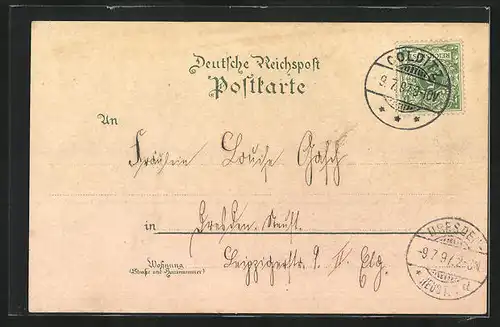 Deutsche Reichspost
Postkarte
COLDITZ
9.7.97.
An
Fräulein Louise Gasch
in Dresden-Neust.
Wohnung
(Straße und Hausnummer)
Leipzigerstr. Etg.
DRESDEN
9.7.97.
NEUST